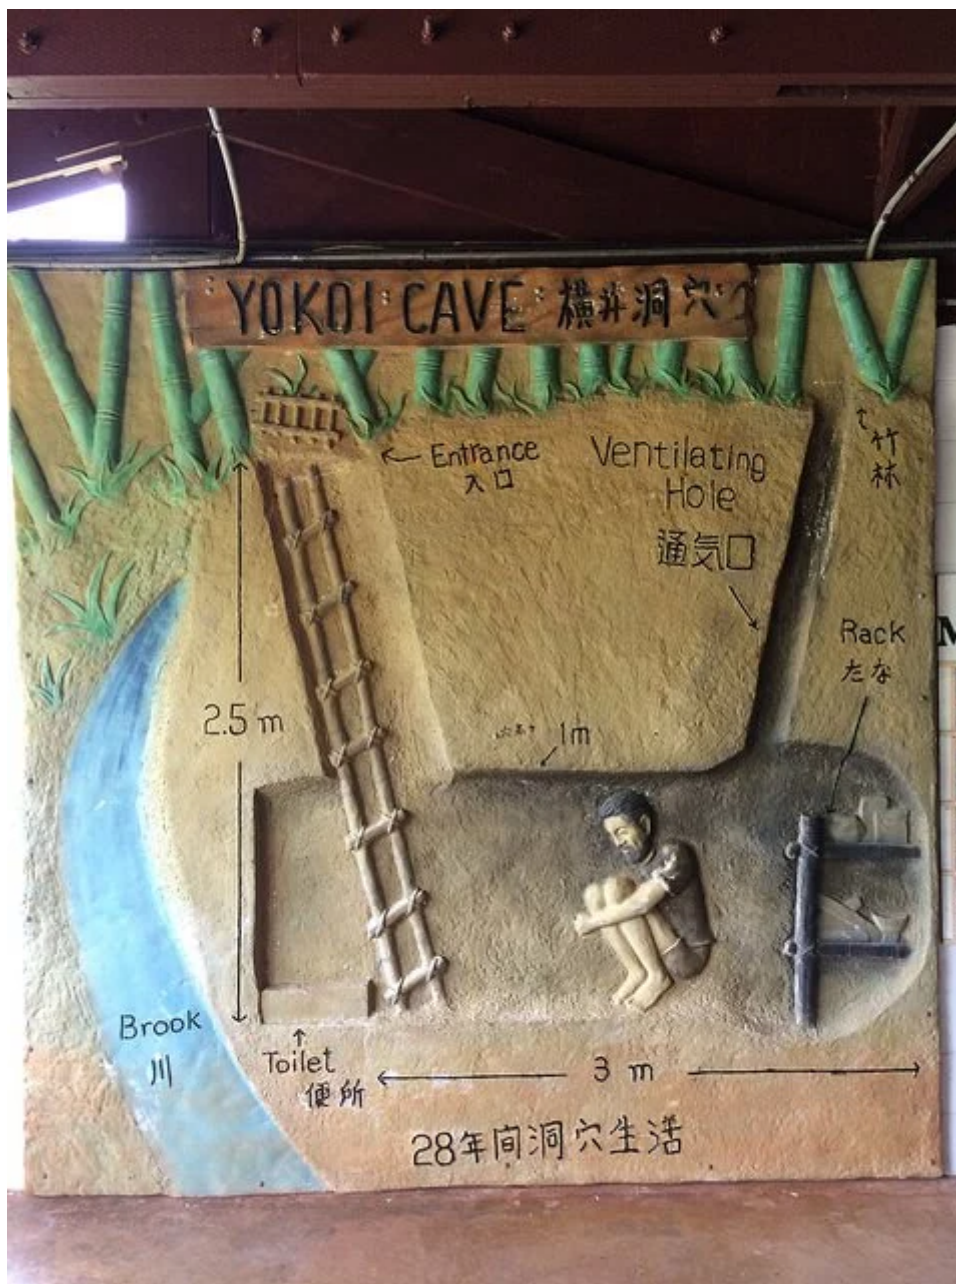 YOKOI CAVE 横井洞穴
Entrance
入口
Ventilating
Hole
通気口
竹
林
Rack
たな
2.5 m
1m
Brook
川
Toilet
便所
3 m
28年间洞穴生活
M